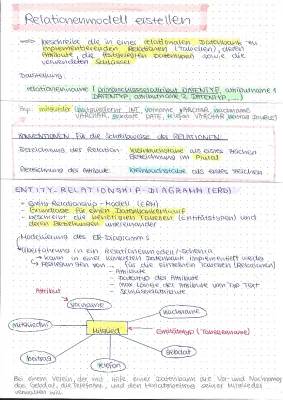 Relationenmodell erstellen
beschreibt die in einer relationalen Datenbank zu
implementierenden Relationen (Tabellen), deren
Attribute, die festgelegten Datentypen sowie die
verwendeten Schlüssel
Darstellung:
relationenname ( primärschlüsselattribut DATENTYP, attributname 1
DATENTYP, attributname 2 DATENTYP, ...)
Bsp. mitglieder INT, vorname VARCHAR, nachname
VARCHAR, gebdat DATE, telefon VARCHAR, beitrag DOUBLE)
KONVENTIONEN für die Schreibweise der RELATIONEN:
Bezeichnung der Relation Kleinbuchstabe als erstes Zeichen
Bezeichnung im Plural
Bezeichnung der Attribute Kleinbuchstabe als erstes Zeichen
ENTITY-RELATIONSHIP-DIAGRAMM (ERD)
- Entity-Relationship-Modell (ERM)
- Grundlage für einen Datenbankentwurf
- beschreibt die benötigten Tabellen (Entitätstypen) und
deren Beziehungen untereinander
Modellierung des ER-Diagramms
Überführung in ein Relationenmodell/-schema
kann in einer konkreten Datenbank implementiert werden
Festlegungen von für die einzelnen Tabellen (Relationen)
- Attribute
- Datentyp des Attributs
- max Länge des Attributs von Typ Text
- Schlüsselattribute
Attribut
vorname
nachname
mitgliednr
Mitglied
Entitätstyp (Tabellenname)
gebdat
beitrag
telefon
Bei einem Verein, der mit Hilfe einer Datenbank die Vor- und Nachnamen,
das Gebdat, die Telefonnr., und den Monatsbeitrag seiner Mitglieder
verwalten will.